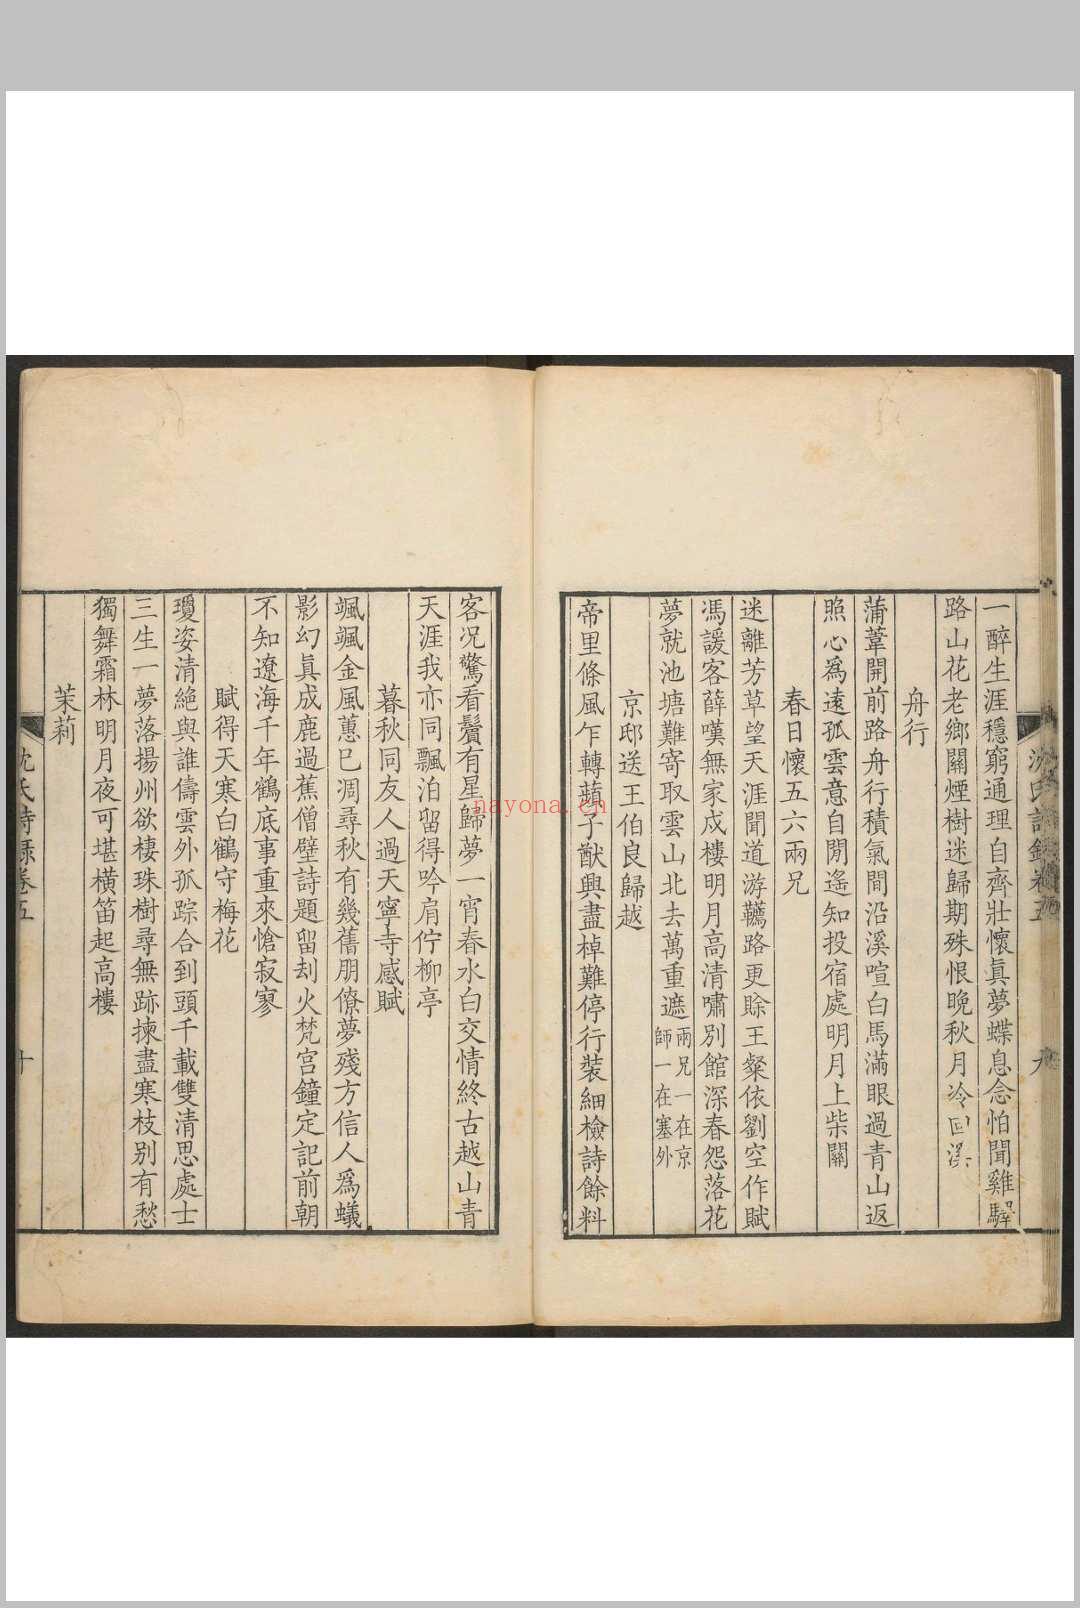 一醉生涯穩窮通理自齊壯懷眞夢蝶息念怕聞雞驛
路山花老鄉關煙樹迷歸期殊恨晚秋月冷回溪
舟行
蒲葦開前路舟行積氣間沿溪喧白馬滿眼過青山返
照心爲遠孤雲意自閒遙知投宿處明月上柴關
春日懷五六兩兄
迷離芳草望天涯聞道游韉路更賒王粲依劉空作賦
馮諼客薛嘆無家戍樓明月高清嘯別館深春怨落花
夢就池塘難寄取雲山北去萬重遮兩兄一在京師一在塞外
京邸送王伯良歸越
帝里條風乍轉蘋子猷興盡棹難停行裝細檢詩餘料
客况驚看鬢有星歸夢一宵春水白交情終古越山青
天涯我亦同飄泊留得吟肩佇柳亭
暮秋同友人過天寧寺感賦
颯颯金風蕙已凋尋秋有幾舊朋僚夢殘方信人爲蟻
影幻眞成鹿過蕉僧壁詩題留刦火梵宫鐘定記前朝
不知遼海千年鶴底事重來愴寂寥
賦得天寒白鶴守梅花
瓊姿清絕與誰儔雲外孤踪合到頭千載雙清思處士
三生一夢落揚州欲棲珠樹尋無跡揀盡寒枝别有愁
獨舞霜林明月夜可堪橫笛起高樓
茉莉
沈氏詩録卷五
十
nayona.cn